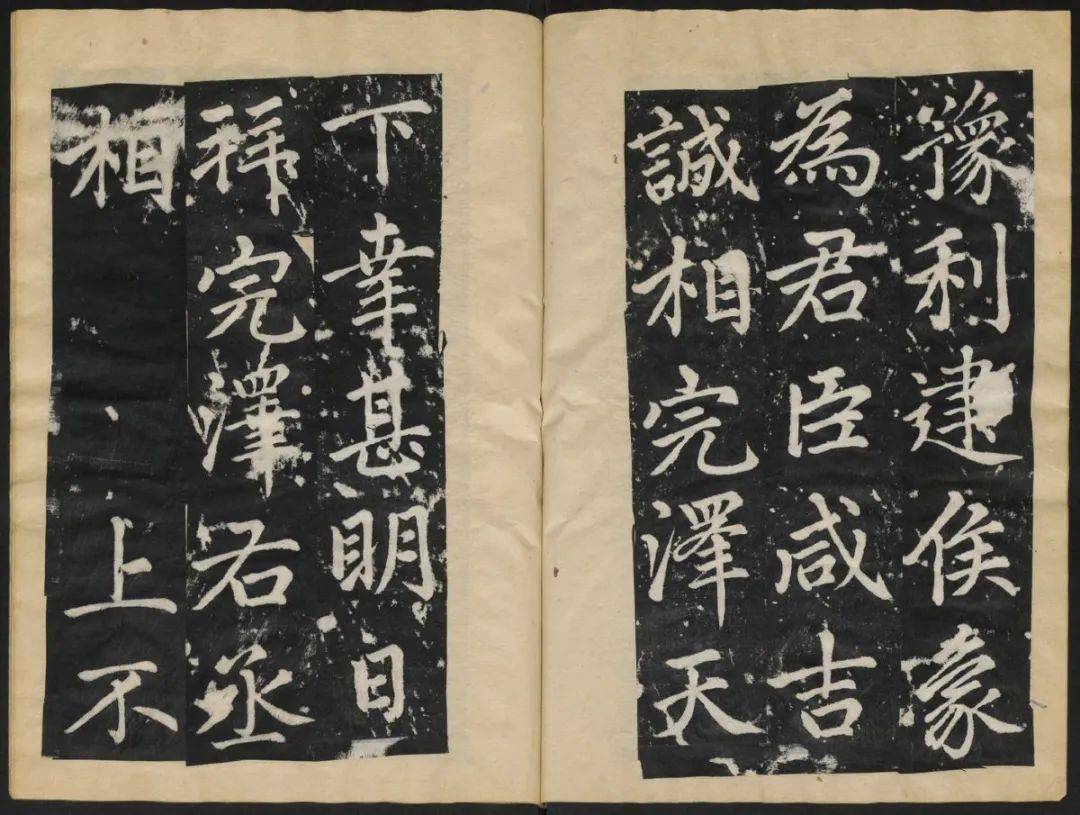 豫利建侯豪
為君臣咸吉
誠相完澤天
下幸甚明日
拜完澤右丞
相上不